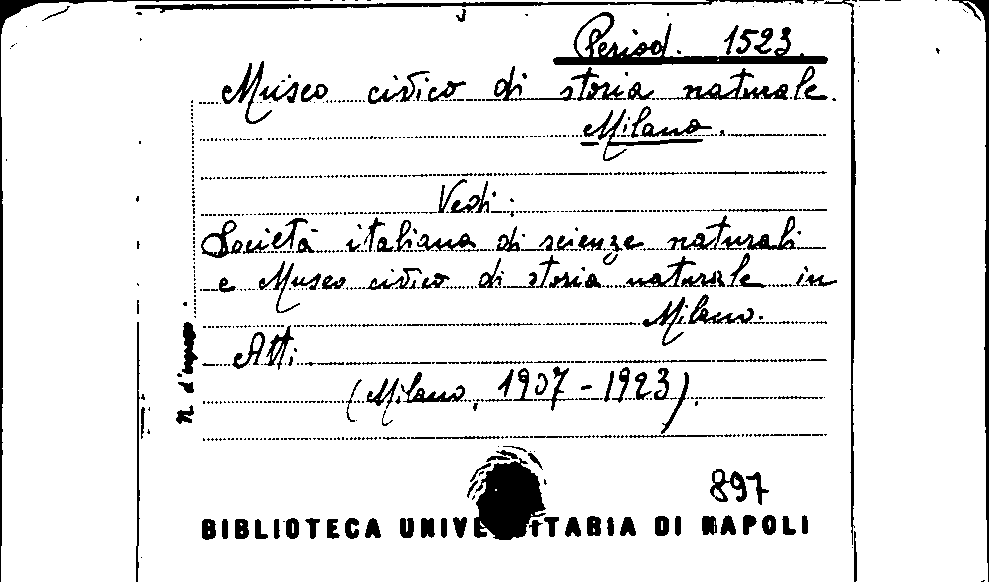 Period. 1523.
Museo civico di storia naturale.
Milano.
Vedi:
Società italiana di scienze naturali
e Museo civico di storia naturale in
Milano.
Atti.
(Milano, 1907-1923).
N. d'ingresso
897
BIBLIOTECA UNIVERSITARIA DI NAPOLI